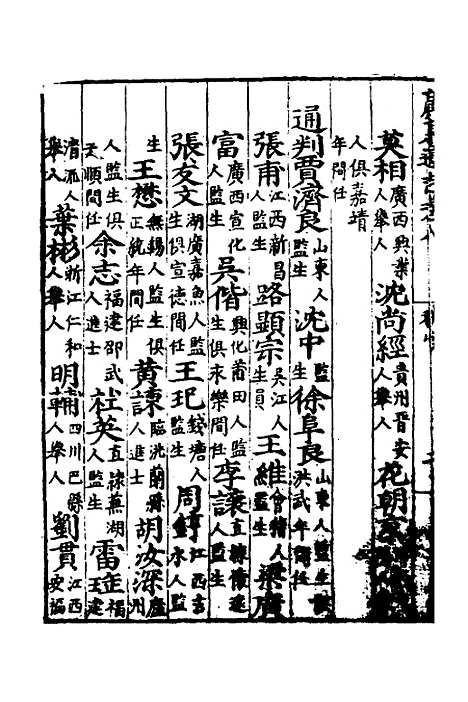 英相廣西興業人舉人 沈尚經貴州晉安人舉人 花朝
人俱嘉靖年間任
通判賈濟良山東人監生 沈中監生 徐阜良山東人監生洪武年間任
張甫江西新昌人監生 路顯宗吳江人生員 王維會稽人監生 梁廣
富廣西宣化人監生 吳偕興化莆田人監生俱永樂間任 李讓直隸儀進人監生
張友文湖廣嘉魚人監生俱宣德間任 王玘錢塘人監生 周錞江西吉水人監
生 王懋無錫人監生俱正統年間任 黃諫臨洮蘭縣人進士 胡汝深廬州
人監生俱天順間任 余志福建邵武人進士 杜英直隸蕪湖人監生 雷在福建
清流人舉人 葉彬浙江仁和人舉人 明輔四川巴縣人舉人 劉貫江西安福